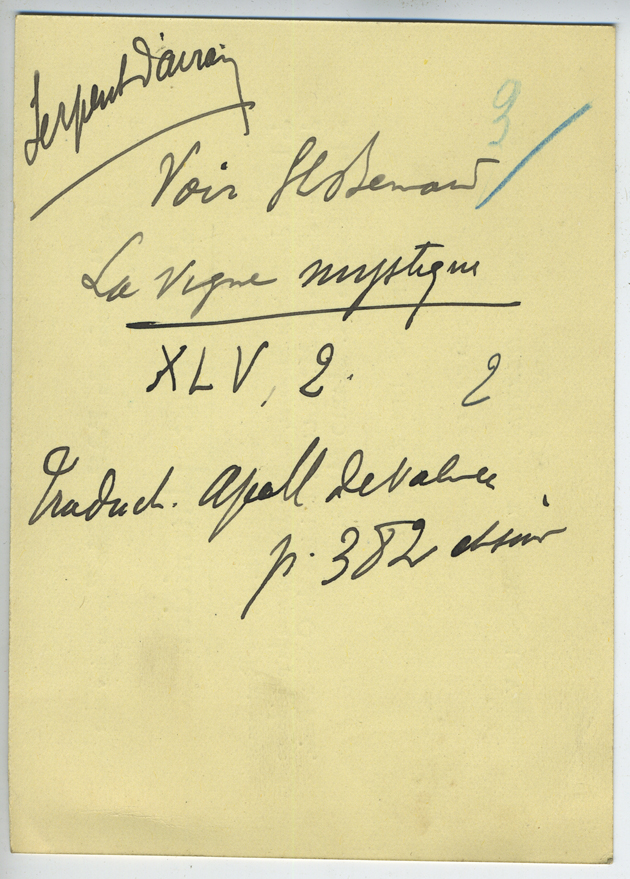 Serpent d'airain
3
Voir St Bernard
La vigne mystique
XLV, 2.
2
Traduct. Apoll de Valence
p. 382 et suiv